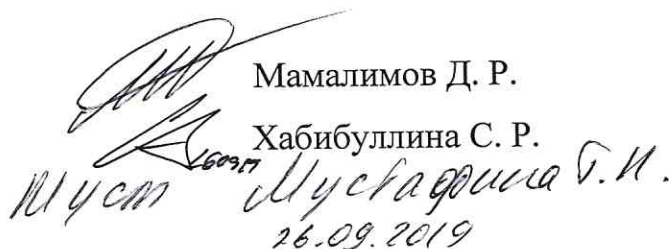 Мамалимов Д. Р.
Хабибуллина С. Р.
Муст Мустафина Т. Н.
26.09.2019